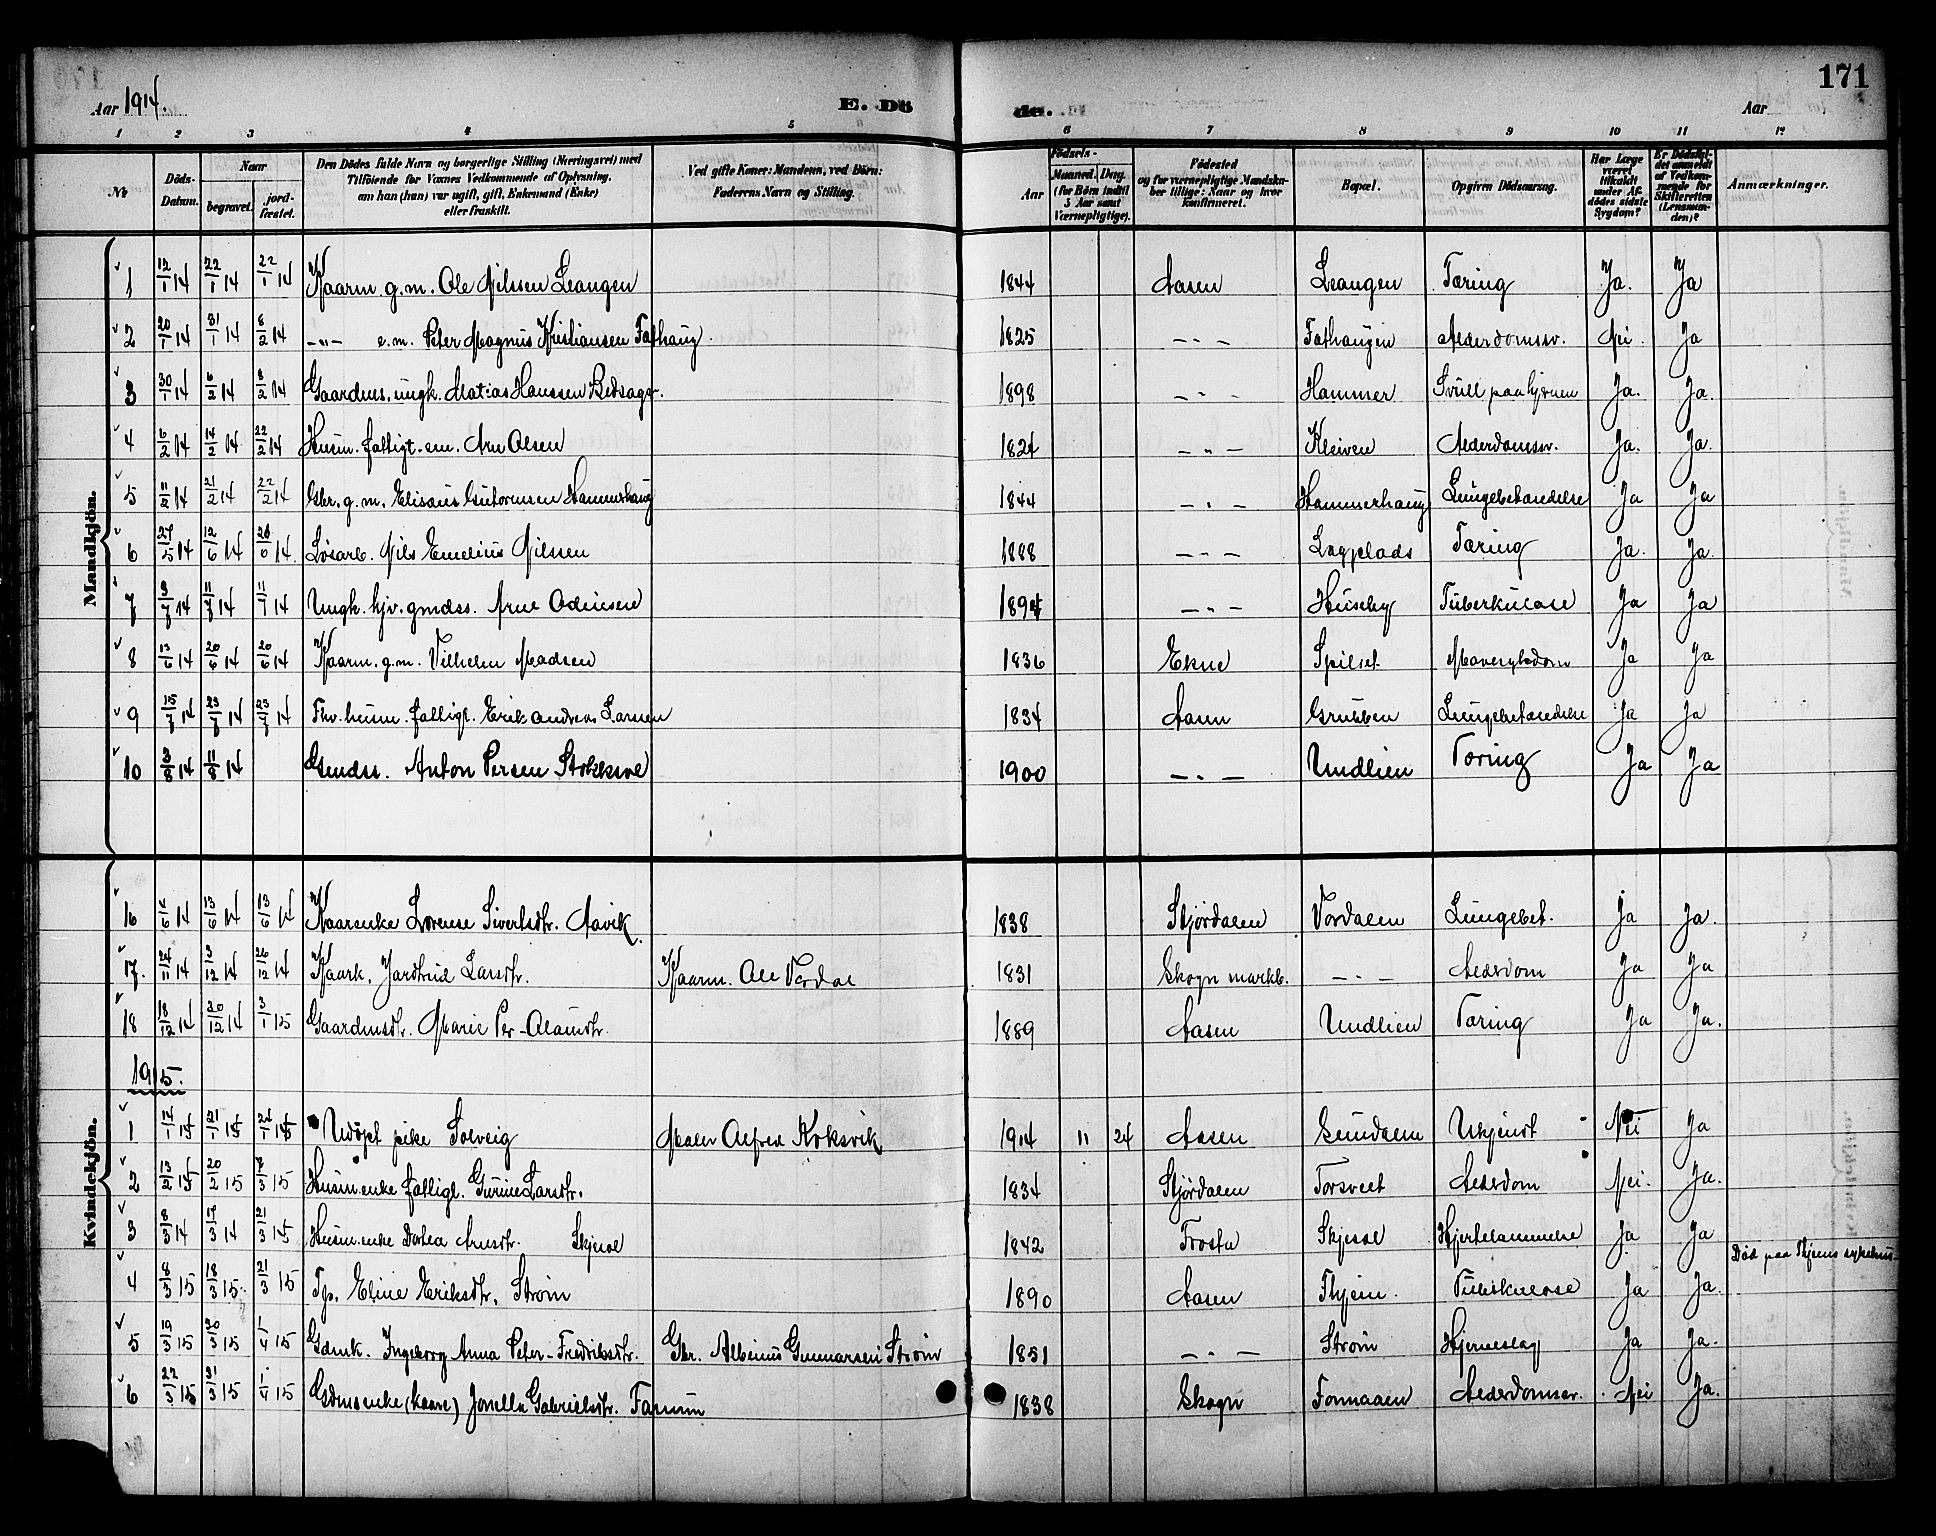 171
Aar 1914.
E. Dö
de.
Aar
1 2 3 4 5 6 7 8 9 10 11 12
№
Döds-Datum.
Naar
begravet.
jord-fæstet.
Den Dödes fulde Navn og borgerlige Stilling (Næringsvei) med
Tilföiende for Voxnes Vedkommende af Oplysning,
om han (hun) var ugift, gift, Enkemand (Enke)
eller fraskilt.
Ved gifte Koner: Mandens, ved Börn:
Faderens Navn og Stilling.
Aar
Födsels-
Maaned. Dag.
(for Börn indtil
5 Aar samt
Værnepligtige).
Födested
og for værnepligtige Mandska-
ber tillige: Naar og hvor
konfirmeret.
Bopæl.
Opgiven Dödsaarsag.
Har Læge
været
tilkaldt
under Af-
dödes sidste
Sygdom?
Er Dödsfal-
det anmeldt
af Vedkom-
mende for
Skifteretten
(Lensman-
den)?
Anmærkninger.
Mandkjön.
1 12/1 14 22/1 14 22/1 14 Kaarm. g.m. Ole Nilssen Leangen 1844 Aasen Leangen Tæring Ja. Ja
2 20/1 14 31/1 14 8/2 14 —"— e.m. Peter Magnus Kristiansen Fathaug. 1825 —"— Fathaugen Alderdomssv. Nei. Ja
3 30/1 14 6/2 14 8/2 14 Gaardms. ungk. Matias Hanssen 1898 —"— Hammer Svull paa hjernen Ja. Ja.
4 6/2 14 14/2 14 22/2 14 Husm. fattigl. em. Arn Olsen 1824 —"— Kleiven Alderdomssv. Ja. Ja.
5 11/2 14 21/2 14 22/2 14 Gbr. g.m. Elisæus Guttormsen Hammerhaug 1844 —"— Hammerhaug Lungebetændelse Ja Ja
6 27/5 14 12/6 14 14 Løsarb. Nils Emelius Nilssen 1888 —"— Tæring Ja. Ja.
7 3/7 14 11/7 14 11/7 14 Ungk. hjv. gmdss. Arne Odinsen 1894 —"— Huseby Tuberkulose Ja Ja
8 13/6 14 20/6 14 20/6 14 Kaarm. g.m. Vilhelm Madsen 1836 Ekne Spilset Mavesykdom Ja Ja
9 15/7 14 23/7 14 23/7 14 Fhv. husm. fattigl. Erik Andreas Larssen 1834 Aasen Grubben Lungebetændelse Ja Ja
10 3/8 14 11/8 14 Gmdss. Anton Persen 1900 —"— Undlien Tæring Ja Ja
Kvindekjön.
16 14 13/6 14 13/6 14 Kaarenke Lorense Sivertsdtr. Aavik. 1838 Stjørdalen Vordalen Lungebet. Ja Ja.
17. 24/11 14 3/12 14 26/12 14 Kaark. Jardtrud Larsdtr. Kaarm. Ole Vordal 1831 Skogn markb. —"— Aldsdom Ja Ja
18 18/12 14 14 3/1 15 Gaardmsdtr. Marie Per-Olausdtr. 1889 Aasen Undlien Tæring Ja Ja.
1915.
1 14/1 15 21/1 15 24/1 15 Udøpt pike Solveig Maler Alfred Koksvik 1914 11 24 Aasen Gundalen Ukjendt Nei Ja
2 13/2 15 20/2 15 15 Husm.enke fattigl. Gurine Larsdtr. 1834 Stjørdalen Torsveet Aldsdom Nei. Ja.
3 8/3 14 17/3 14 21/3 15 Husm.enke Dortea Arnsdtr. Skjesol 1842 Frosta Skjesol Hjertelammelse Ja Ja
4 8/3 15 18/3 15. 21/3 15 Tp. Eline Eriksdtr. Strøm 1890 Aasen Thjem. Tuberkulose Ja Ja. Død paa Thjems sykehus.
5 19/3 15 15 1/4 15 Gdmk. Ingeborg Anna Peter-Fredriksdtr. Gbr. Albinus Gunnarsen Strøm 1851 —"— Strøm Hjerneslag Ja Ja.
6 22/3 15 31/3 15 1/4 15 Gdmsenke (kaare) Jonetta Gabrielsdtr. 1838 Skogn Formaaen Aldersdomssv. Nei Ja.